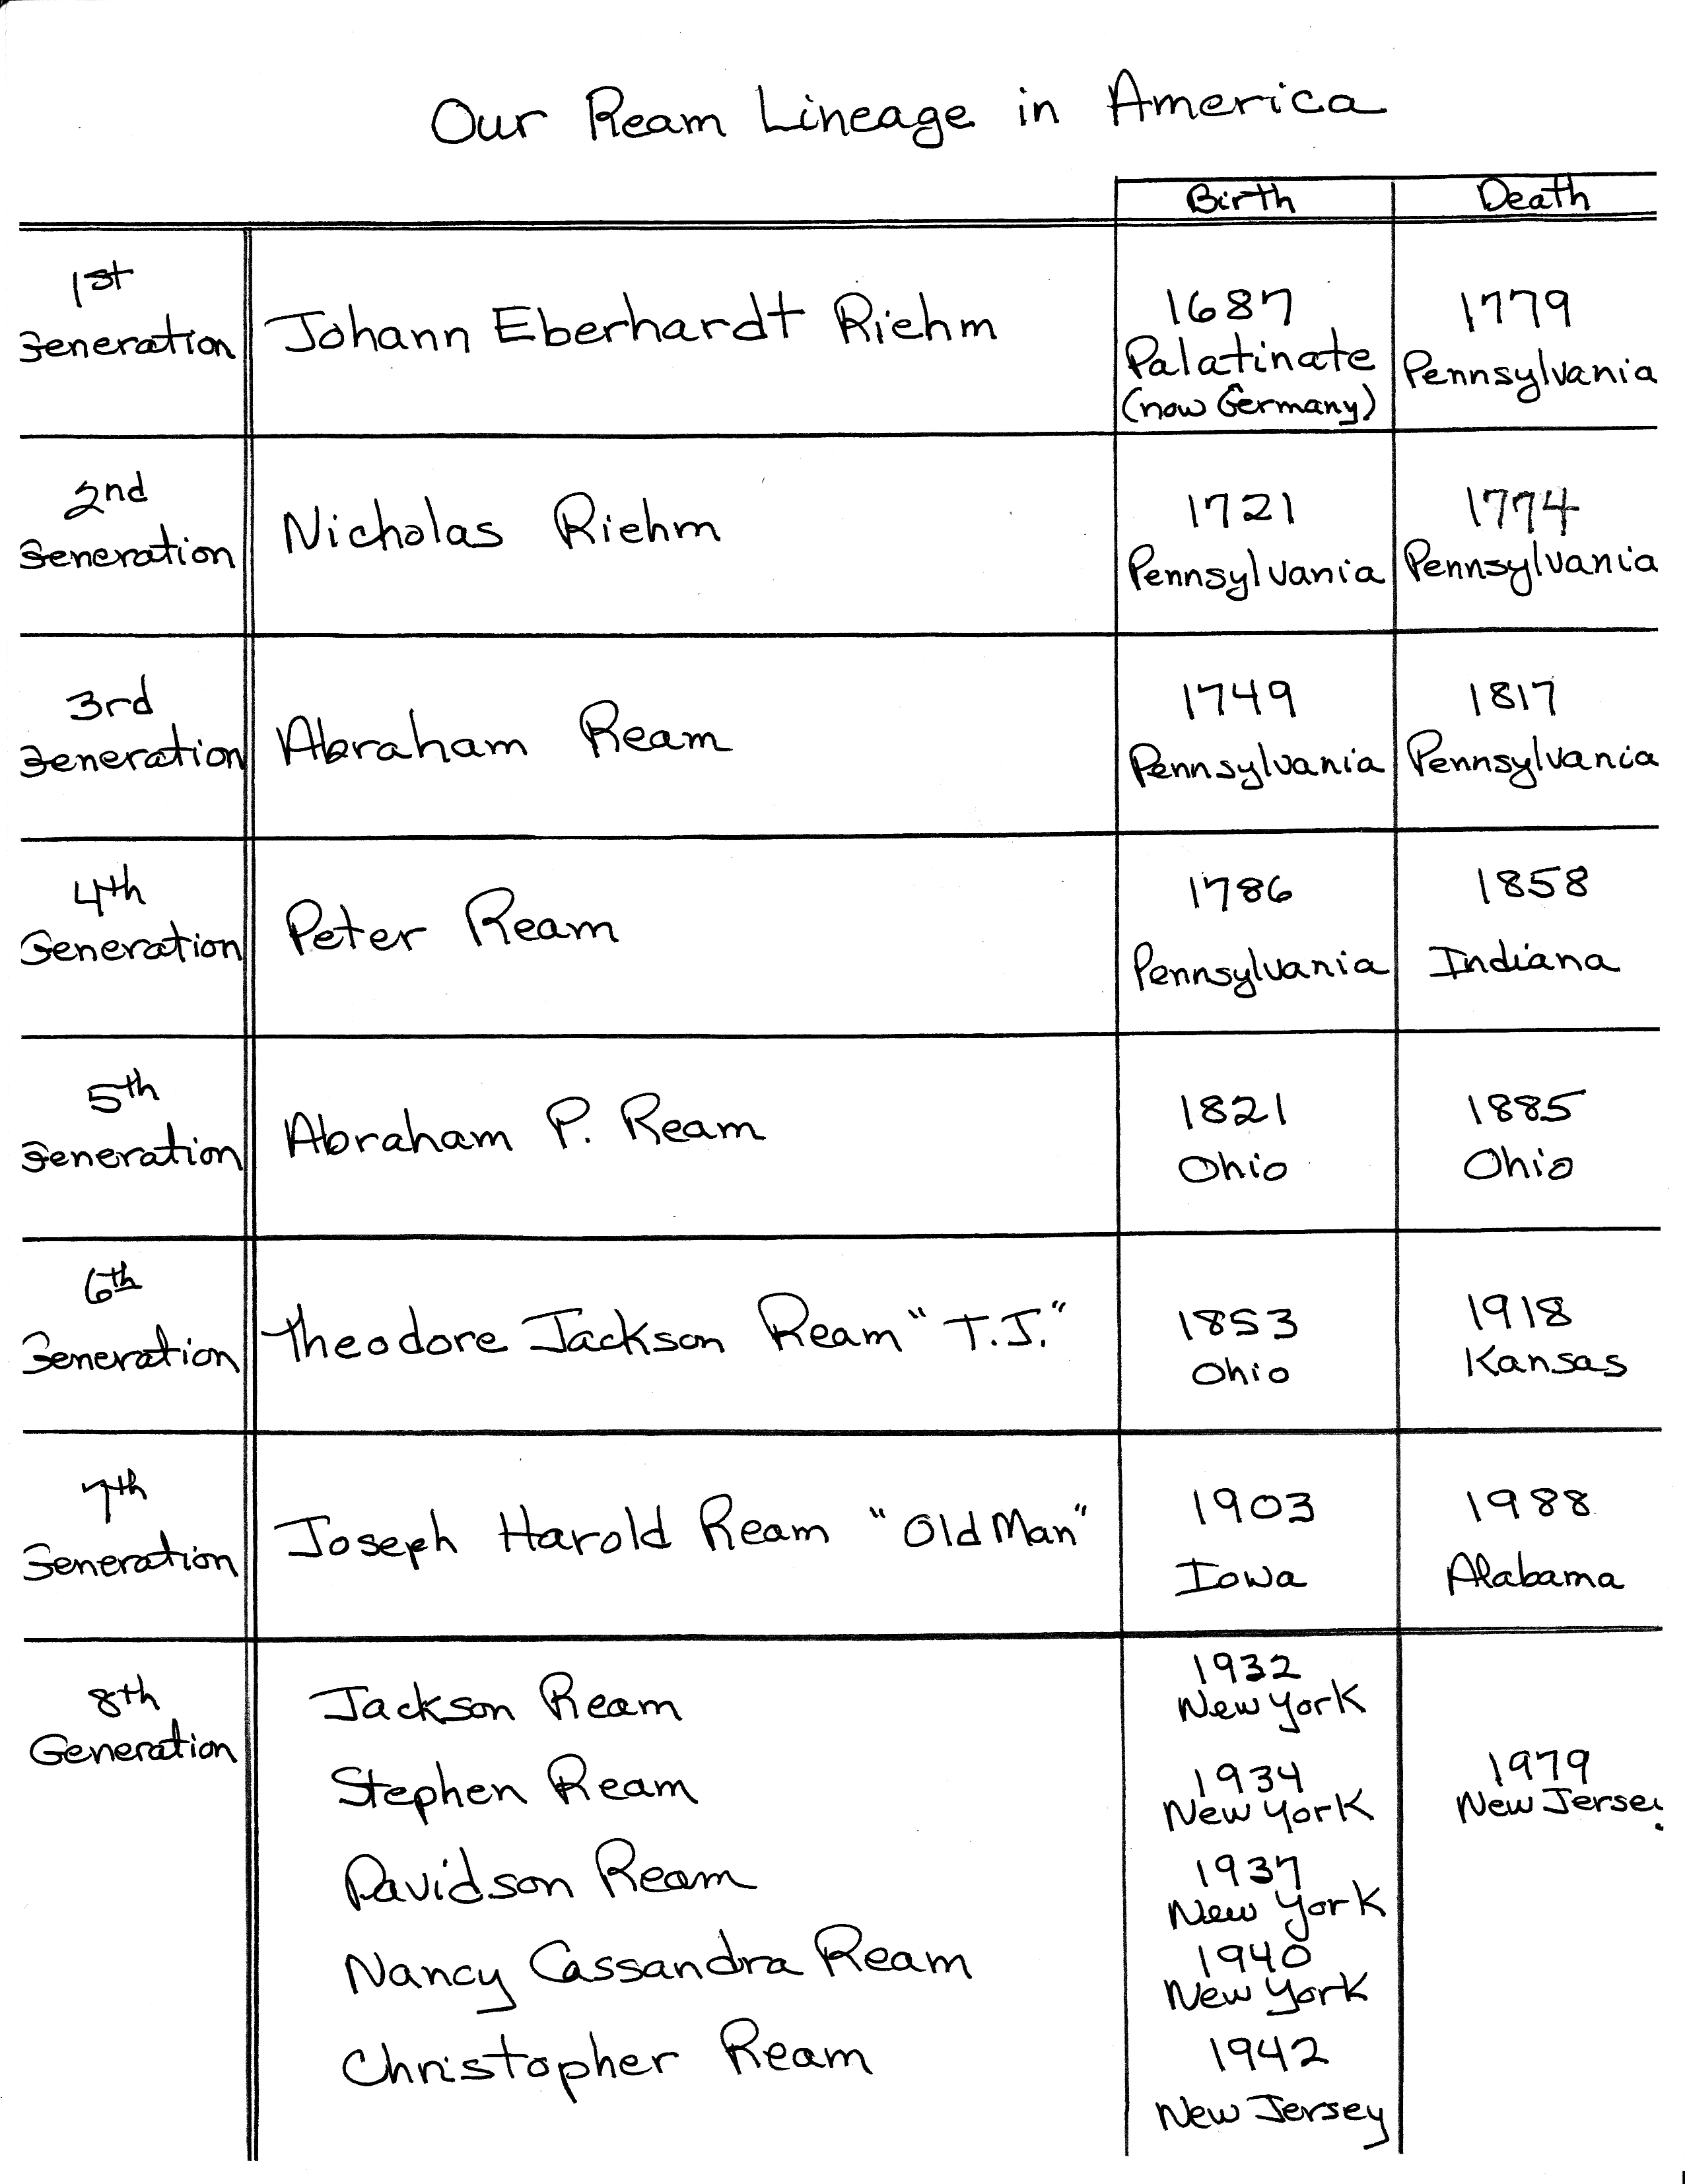 Our Ream Lineage in America
Birth Death
1st
Generation
Johann Eberhardt Riehm
1687
Palatinate
(now Germany)
1779
Pennsylvania
2nd
Generation
Nicholas Riehm
1721
Pennsylvania
1774
Pennsylvania
3rd
Generation
Abraham Ream
1749
Pennsylvania
1817
Pennsylvania
4th
Generation
Peter Ream
1786
Pennsylvania
1858
Indiana
5th
Generation
Abraham P. Ream
1821
Ohio
1885
Ohio
6th
Generation
Theodore Jackson Ream "T.J."
1853
Ohio
1918
Kansas
7th
Generation
Joseph Harold Ream "Old Man"
1903
Iowa
1988
Alabama
8th
Generation
Jackson Ream
1932
New York
Stephen Ream
1934
New York
1979
New Jersey
Davidson Ream
1937
New York
Nancy Cassandra Ream
1940
New York
Christopher Ream
1942
New Jersey